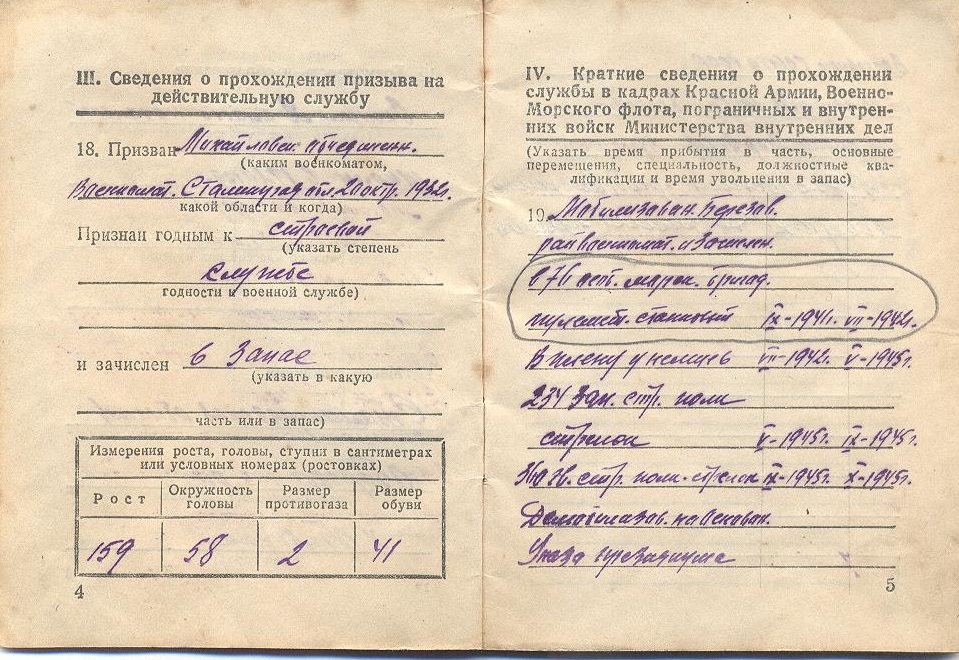 III. Сведения о прохождении призыва на
действительную службу
18. Призван Михайловск.
(каким военкоматом,
Военкомат. Сталинград обл. 20 окт. 1932г.
какой области и когда)
Признан годным к строевой
(указать степень
службе
годности к военной службе)
и зачислен в запас
(указать в какую
часть или в запас)
Измерения роста, головы, ступни в сантиметрах
или условных номерах (ростовках)
Рост Окружность головы Размер противогаза Размер обуви
159 58 2 41
4
IV. Краткие сведения о прохождении
службы в кадрах Красной Армии, Военно-
Морского флота, пограничных и внутрен-
них войск Министерства внутренних дел
(Указать время прибытия в часть, основные
перемещения, специальность, должностные ква-
лификации и время увольнения в запас)
19. Мобилизован. Березов.
райвоенкомат. и зачислен.
в 76 морск. бригад.
пулеметч. станковый IX-1941г. VII-1942г.
В плену у немцев VII-1942. V-1945г.
234 зап. стр. полк
стрелок V-1945г. IX-1945г.
стр. полк-стрелок IX-1945г. X-1945г.
Демобилизов. на основан.
Указа президиума
5